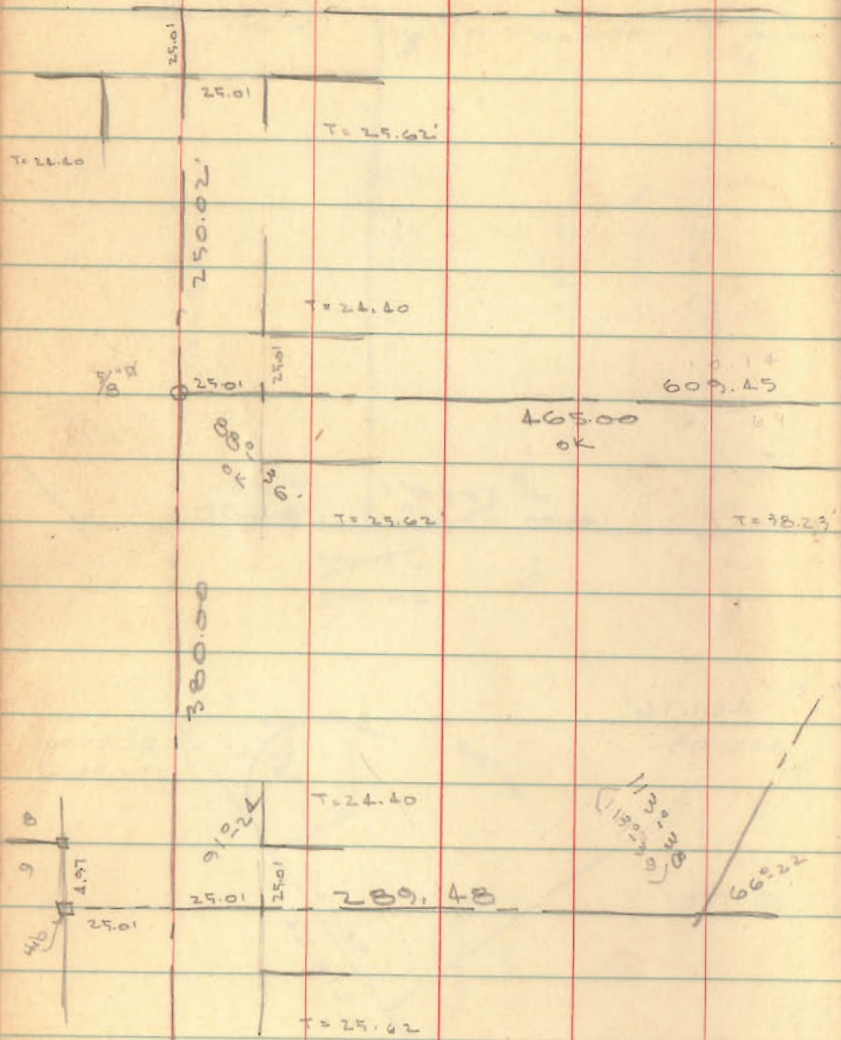 25.01
25.01
T=25.62'
T=24.40
250.02'
T=24.40
25.01
25.01
609.45
465.00
OK
88°
36'
OK
T=25.62'
T=38.23'
380.00
T=24.40
91°-24
113°-38
(113°-39)
66°-22
8
9
4.97
25.01
25.01
289.48
25.01
T=25.62